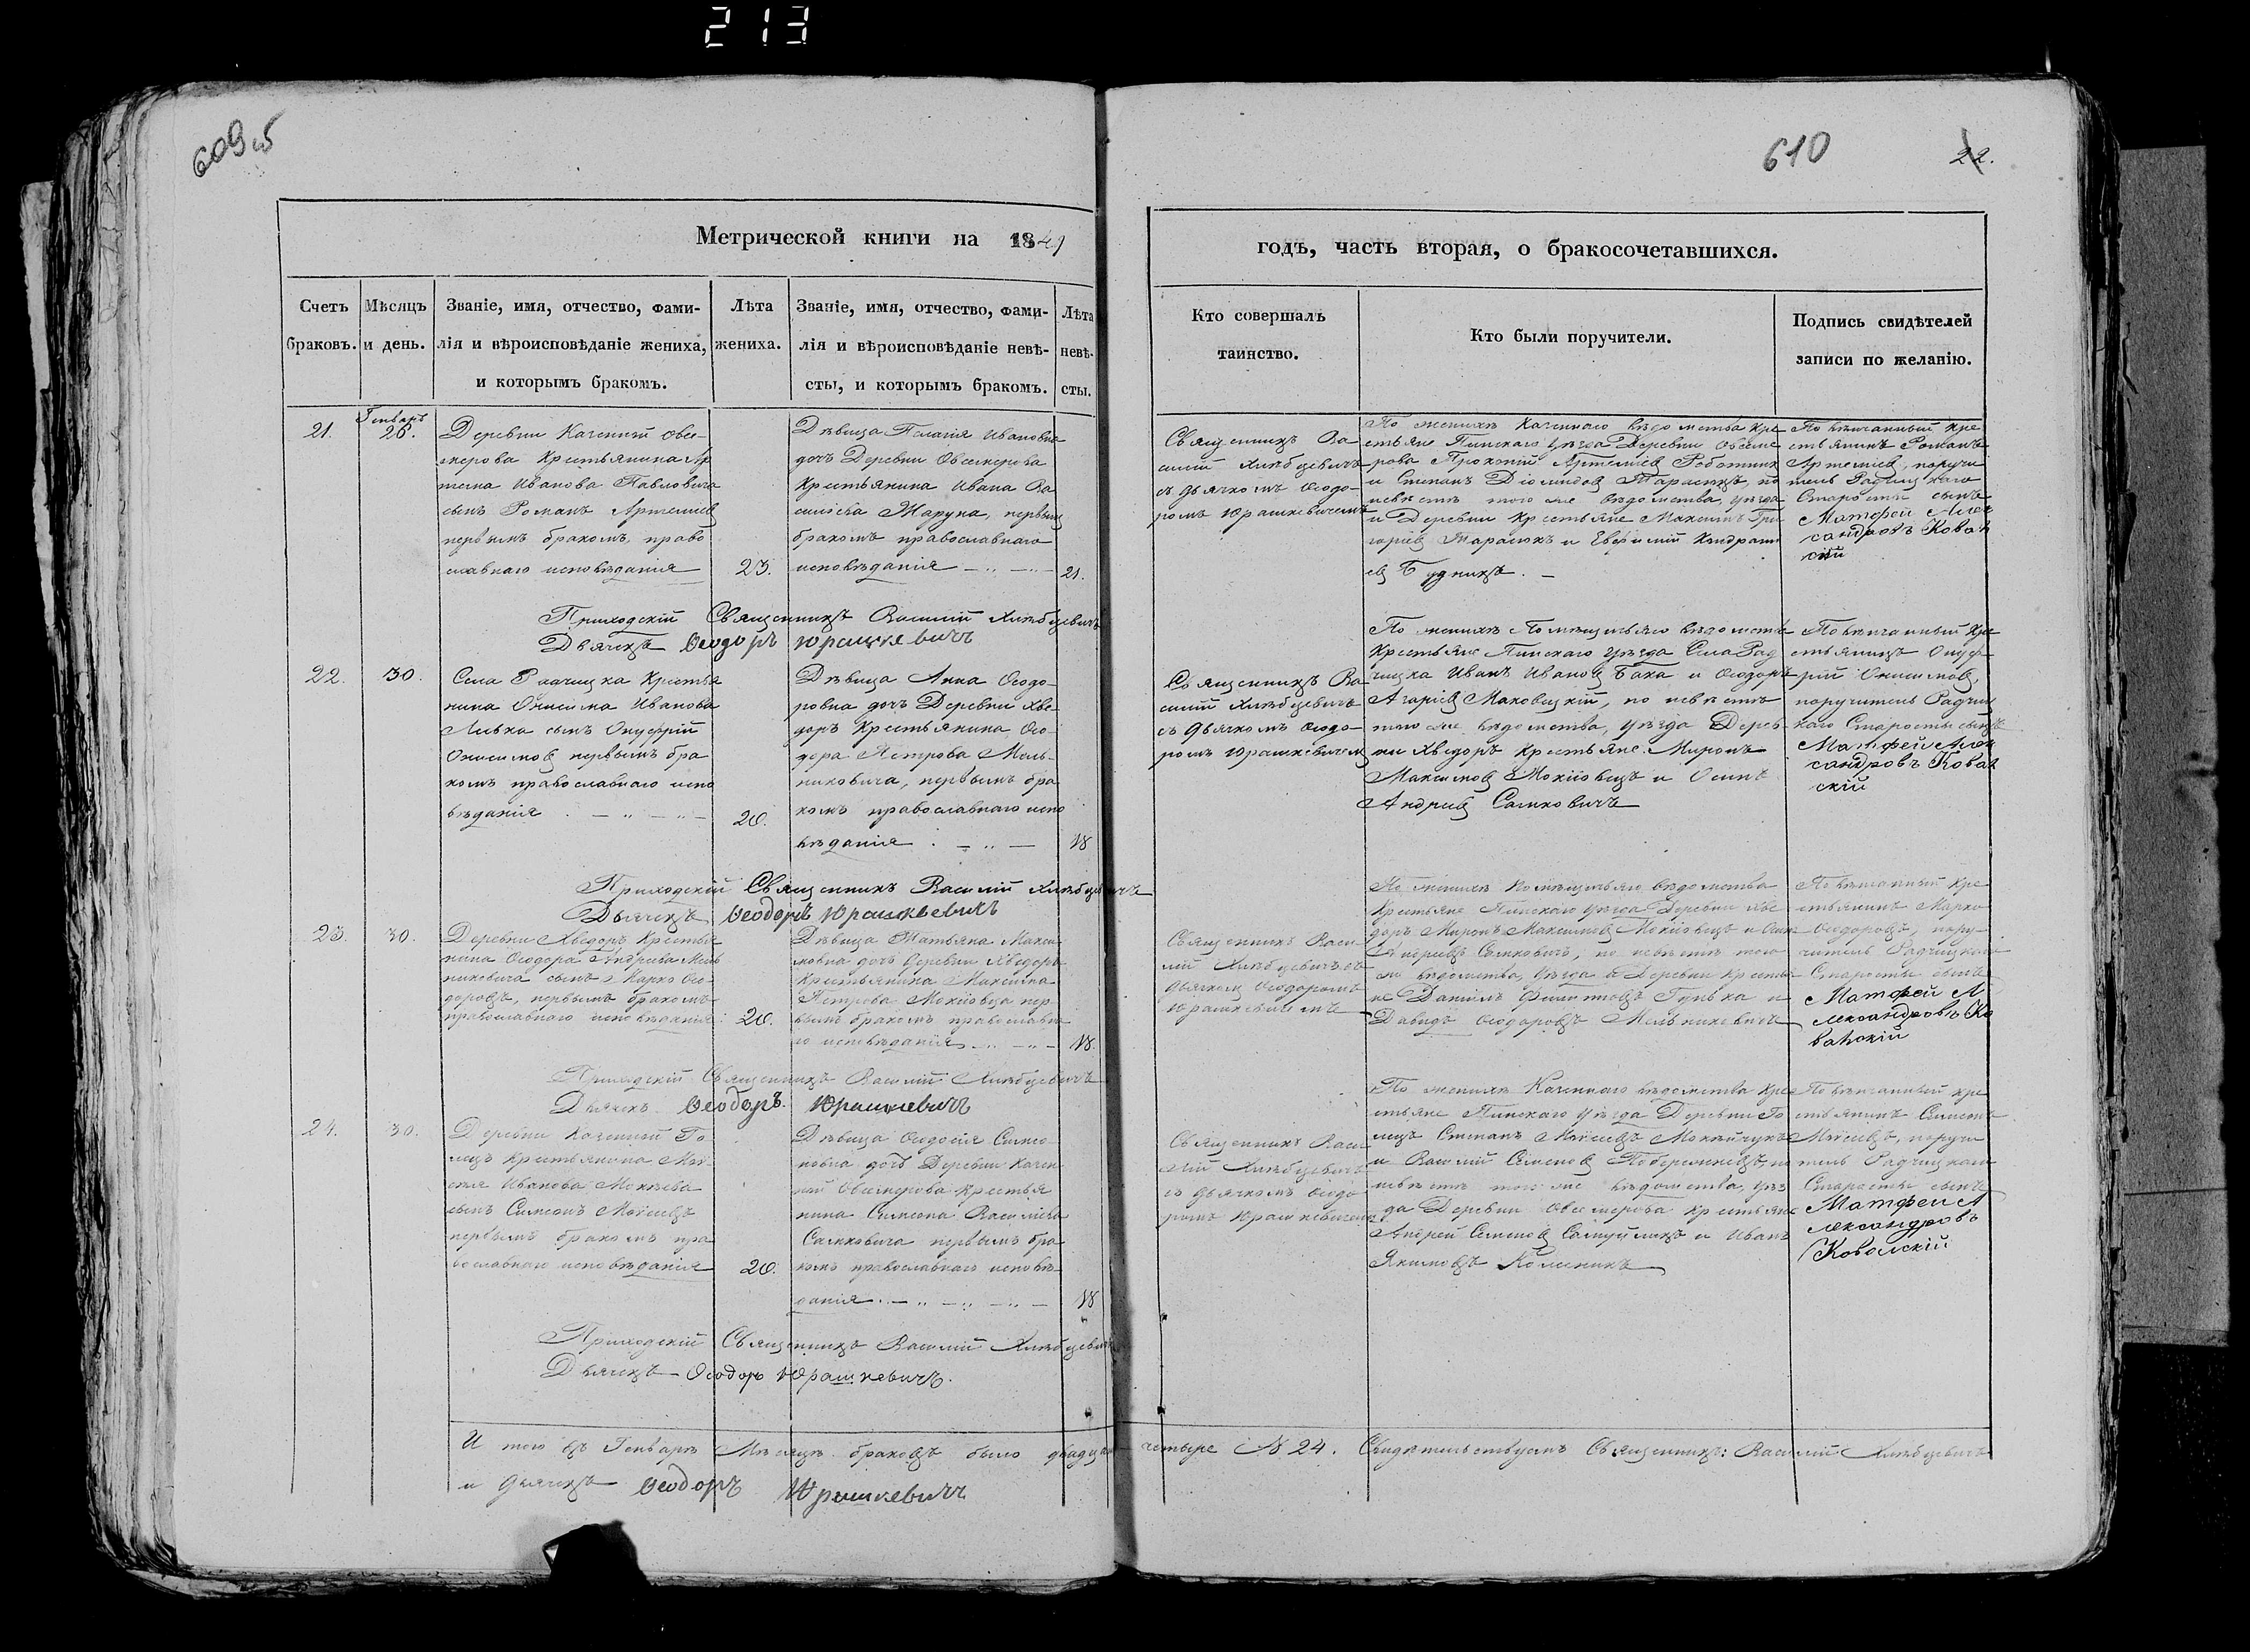 213
609 об
610
22.
Метрической книги на 1849
годъ, часть вторая, о бракосочетавшихся.
Счетъ
браковъ.
Мѣсяцъ
и день.
Званіе, имя, отчество, фами-
лія и вѣроисповѣданіе жениха,
и которымъ бракомъ.
Лѣта
жениха.
Званіе, имя, отчество, фами-
лія и вѣроисповѣданіе невѣ-
сты, и которымъ бракомъ.
Лѣта
невѣ-
сты.
Кто совершалъ
таинство.
Кто были поручители.
Подпись свидѣтелей
записи по желанію.
21.
Генваръ
26.
Деревни Казенной Овсе-
мерова Крестьянина Ар
тема Иванова Павловича
сынъ Романъ Артемиев
первымъ бракомъ, право
славнаго исповѣданія
23.
Дѣвица Пелагія Ивановна
дочь Деревни Овсемерова
Крестьянина Ивана Ва
силіева Жарука, первымъ
бракомъ православнаго
исповѣданія
21.
Священникъ Ва
силій Хлѣбцевичъ
съ дьячкомъ Ѳеодо-
ромъ Юрашкевичемъ
По женихѣ Казеннаго вѣдомства кре
стьяне Пинскаго уѣзда Деревни Овсеме
рова Прокопій Артеміев Работник
и Степанъ Тарасюкъ, по
невѣстѣ того же вѣдомства, уѣзда
и Деревни крестьяне Максимъ Гри
горіев Тарасюкъ и Евфимій Кондрати
ев Будникъ.
Повѣнчанный кре
стьянинъ Романъ
Артеміев, поручи
тель Радчицкаго
Старосты сынъ
Матфей Алек
сандровъ Коваль
скій
Приходскій Священникъ Василій Хлѣбцевичъ
Дьячекъ Ѳеодоръ Юрашкевичъ
22.
30.
Села Радчицка Крестья
нина Онисима Иванова
Ливка сынъ Онуфрій
Онисимов первымъ бра
комъ православнаго испо
вѣданія
20.
Дѣвица Анна Ѳеодо-
ровна дочь Деревни Хве
доръ Крестьянина Ѳео-
дора Петрова Мель-
никовича, первымъ бра
комъ православнаго испо
вѣданія
18
Священникъ Ва
силій Хлѣбцевичъ
съ дьячкомъ Ѳеодо-
ромъ Юрашкевичем
По женихѣ Помѣщичьяго вѣдомства
Крестьяне Пинскаго уѣзда Села Рад
чицка Иванъ Иванов Баха и Ѳеодоръ
Азаріев Маковецкій, по невѣстѣ
того же вѣдомства, уѣзда Дерев-
ни Хведоръ крестьяне Миронъ
Максимов Мокіовецъ и Осипъ
Андреев Сачковичъ
Повѣнчанный Кре
стьянинъ Онуф-
рій Онисимов,
поручитель Радчиц
каго Старосты сынъ
Матфей Алек
сандровъ Коваль
скій
Приходскій Священникъ Василій Хлѣбцевичъ
Дьячекъ Ѳеодоръ Юрашкевичъ
23.
30.
Деревни Хведоръ Крестья
нина Ѳеодора Андреева Мель
никовича сынъ Марко Ѳео-
доровъ, первымъ бракомъ
православнаго исповѣданія
20.
Дѣвица Татьяна Макси
мовна дочь Деревни Хведоръ
Крестьянина Максима
Петрова Мокіовца пер-
вымъ бракомъ православна
го исповѣданія
18.
Священникъ Васи-
лій Хлѣбцевичъ съ
дьячком Ѳеодоромъ
Юрашкевичемъ
По женихѣ Помѣщичьяго вѣдомства
Крестьяне Пинскаго уѣзда Деревни Хве
доръ Миронъ Максимов Мокіовецъ и Осип
Андреевъ Сачковичъ, по невѣстѣ того
же вѣдомства, уѣзда и Деревни крестья
не Даніилъ Филиповъ Гунька и
Давидъ Ѳеодоровъ Мельниковичъ
Повѣнчанный Кре
стьянинъ Марко
Ѳеодоровъ, пору-
читель Радчицкаго
Старосты сынъ
Матфей А
лександровъ Ко
вальскій
Приходскій Священникъ Василій Хлѣбцевичъ
Дьячекъ Ѳеодоръ Юрашкевичъ
24.
30.
Деревни Казенной Го
лецъ Крестьянина Мой-
сея Иванова Мокѣева
сынъ Симеонъ Моѵсеевъ
первымъ бракомъ пра
вославнаго исповѣданія
20.
Дѣвица Ѳеодосія Симео
новна дочь Деревни Казен-
ной Овсемерова Крестья
нина Симеона Василіева
Сачковича первымъ бра
комъ православнаго исповѣ-
данія
18
Священникъ Васи
лій Хлѣбцевичъ
съ дьячкомъ Ѳеодо
ромъ Юрашкевичем
По женихѣ Казеннаго вѣдомства кре
стьяне Пинскаго уѣзда Деревни Го
лецъ Степанъ Моѵсеевъ Мокѣйчукъ
и Василій Семенов, по
невѣстѣ того же вѣдомства, уѣз
да Деревни Овсемерова крестьяне
Андрей Семенов и Иванъ
Якимовъ Колесникъ
Повѣнчанный кре
стьянинъ Симеонъ
Моѵсеевъ, поручи
тель Радчицкаго
Старосты сынъ
Матфей А
лександровъ
Ковальскій
Приходскій Священникъ Василій Хлѣбцевичъ
Дьячекъ Ѳеодоръ Юрашкевичъ.
И того въ Генварѣ Мѣсяцѣ браковъ было двадцать четыре № 24. Свидѣтельствуемъ Священникъ: Василій Хлѣбцевичъ
и дьячекъ Ѳеодоръ Юрашкевичъ